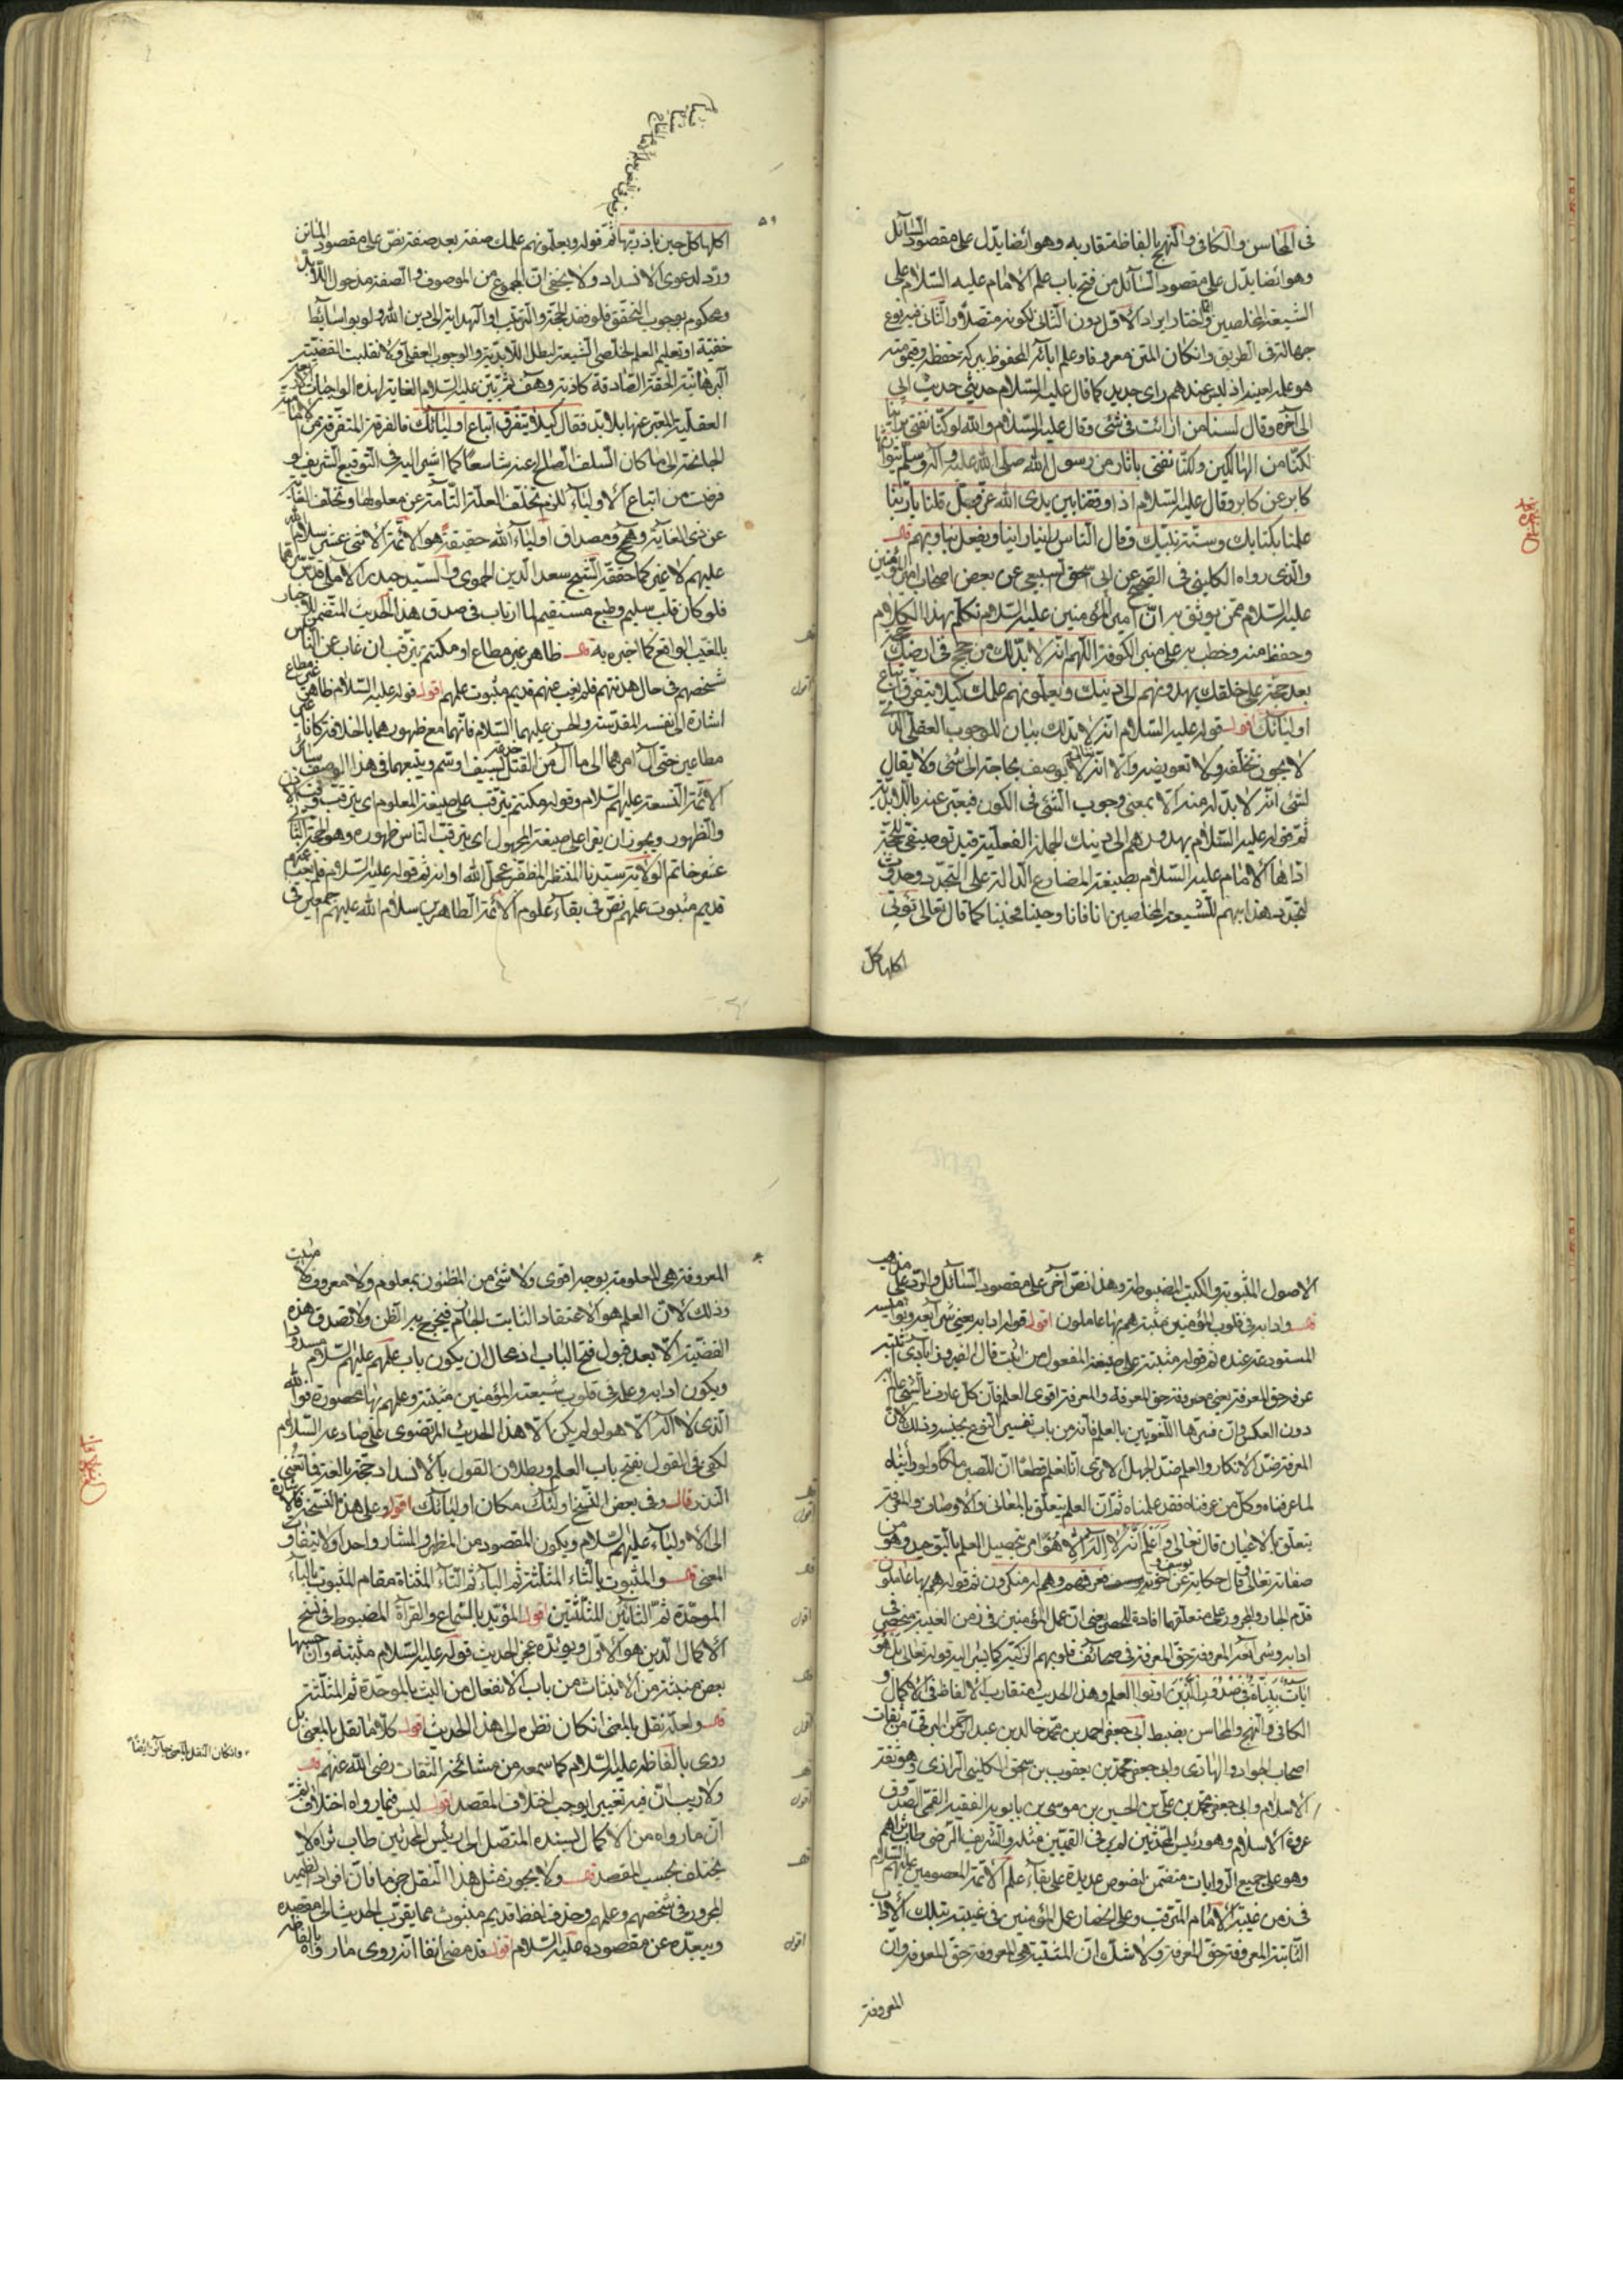 فى المحاسن والكافى والنهج بالفاظ متقاربه وهو ايضا يدل على مقصود السائل
وهو ايضا يدل على مقصود السائل من فتح باب علم الامام عليه السلام على
الشيعة المخلصين واختار ايراد الاول دون الثانى لكونه متصلا والثانى فيه نوع
جهالة فى الطريق وانكان المتن معروفا وعلم آبائه المحفوظ ببركة حفظه
هو علمه بعينه اذ ليس عندهم راى جديد كما قال عليه السلام حديثى حديث ابى
الى آخره وقال لسنا من ارايت فى شئ وقال عليه السلام والله لو كنا نفتى براينا
لكنا من الهالكين ولكنا نفتى بآثار من رسول الله صلى الله عليه وآله وسلم نتوارثها
كابر عن كابر وقال عليه السلام اذا وقفنا بين يدى الله عز وجل قلنا يا ربنا
علمنا بكتابك وسنة نبيك وقال الناس راينا راينا ويفعل بنا وبهم
والذى رواه الكلينى فى الصحيح عن ابى اسحق السبيعى عن بعض اصحاب امير المؤمنين
عليه السلام ممن يوثق به ان امير المؤمنين عليه السلام تكلم بهذا الكلام
وحفظ منه وخطب به على منبر الكوفة اللهم انه لا بد لك من حجج فى ارضك حجة
بعد حجة على خلقك يهدونهم الى دينك ويعلمونهم علمك كيلا يتفرق اتباع
اوليائك اقول قوله عليه السلام انه لا بد لك بيان للوجوب العقلى الذى
لا يجوز تخلفه ولا تعويضه والا انه تعالى لا يوصف بحاجة الى شئ ولا يقال
لشئ انه لا بد له منه الا بمعنى وجوب الشئ فى الكون فيعبر عنه باللابدية
ثم قوله عليه السلام يهدونهم الى دينك الجملة الفعلية قيد توصيفى للحجة
اداها الامام عليه السلام بصيغة المضارع الدالة على التجدد وحدوث
لتجدد هدايتهم للشيعة المخلصين انا فانا وحينا فحينا كما قال تعالى تؤتى
اكلها كل
اكلها كل حين باذن ربها ثم قوله ويعلمونهم علمك صفة بعد صفة نص على مقصود الماتن
ورد لدعوى الانسداد ولا يخفى ان المجموع من الموصوف والصفة مدخول اللابد
ومحكوم بوجوب التحقق فلو فقد الحجة والترتب او الهداية الى دين الله ولو بوسايط
خفية او تعليم العلم لخلص الشيعة لبطل اللابدية والوجوب العقلى ولانقلبت القضية
البرهانية الحقة الصادقة كاذبة وهف ثم بين عليه السلام الغاية لهذه الواجبات
العقلية المعبر عنها بلا بد فقال كيلا يتفرق اتباع اوليائك فالفرقة المتفرقة
الجانحة الى ما كان السلف الصالح عنه شاسعا كما اشير اليه فى التوقيع الشريف
فرضت من اتباع الاولياء للزم تخلف العلة التامة عن معلولها وتخلف الغاية
عن ذى الغاية وهو مح ومصداق اولياء الله حقيقة هو الائمة الاثنى عشر سلام الله
عليهم لا غير كما حققه الشيخ سعد الدين الحموى والسيد حيدر الاملى قدس سرهما
فلو كان قلب سليم وطبع مستقيم لما ارتاب فى صدق هذا الحديث المتضمن للاخبار
بالغيب الواقع كما اخبر به ظاهر غير مطاع او مكتتم يترقب ان غاب عن الناس
شخصهم فى حال هدنتهم فلم يغب عنهم قديم مثبوت علمهم اقول قوله عليه السلام ظاهر غير مطاع
اشارة الى نفسه المقدسة والحسن عليهما السلام فانهما مع ظهورهما بالخلافة كانا غير
مطاعين حتى آل امرهما الى ما آل من القتل بسيف او سم ويتبعهما فى هذا الوصف سائر
الائمة التسعة عليهم السلام وقوله مكتتم يترقب على صيغة المعلوم اى يترقب وقت
والظهور ويجوز ان يقرا على صيغة المجهول اى يترقب الناس ظهوره وهو الحجة الثانى
عشر خاتم الولاية سيدنا المنتظر المظفر عجل الله اوانه ثم قوله عليه السلام فلم يغب عنهم
قديم مثبوت علمهم نص فى بقاء علوم الائمة الطاهرين سلام الله عليهم اجمعين فى
الاصول المثبوتة والكتب المضبوطة وهذا نص آخر على مقصود السائل والرد على مذهب
وادابه فى قلوب المؤمنين مثبتة هم بها عاملون اقول قوله ادابه يعنى شرايعه
المستودعة عنده ثم قوله مثبتة على صيغة المفعول من اثبت قال الفيروزابادى
عرفه حق المعرفة يعنى معروفة حق المعرفة والمعرفة اقوى العلم فان كل عارف بالشئ عالم به
دون العكس وان فسرها اللغويين بالعلم فانه من باب تفسير النوع بجنسه وذلك لان
المعرفة ضد الانكار والعلم ضد الجهل الا ترى انا نعلم قطعا ان للصين ملكا ولو رأيناه
لما عرفناه وكل من عرفناه فقد علمناه ثم ان العلم يتعلق بالمعانى والاوصاف والمعرفة
يتعلق بالاعيان قال تعالى واعلم انه لا اله الا هو امر بتحصيل العلم بالتوحيد وهو من
صفاته تعالى وقال حكاية عن اخوة يوسف فعرفهم وهم له منكرون ثم قوله هم بها عاملون
قدم الجار والمجرور على متعلقهما افادة للحصر يعنى ان عمل المؤمنين فى زمن الغيبة منحصر فى
ادابه وشرايعه المعروفة حق المعرفة فى صحائف قلوبهم الزكية كما يشير اليه قوله تعالى بل هو
آيات بينات فى صدور الذين اوتوا العلم وهذا الحديث متقارب الالفاظ فى الاكمال و
الكافى والنهج والمحاسن بضبط ابى جعفر احمد بن محمد خالد بن عبد الرحمن البرقى
اصحاب الجواد والهادى وابى جعفر محمد بن يعقوب بن اسحق الكلينى الرازى وهو ثقة
الاسلام وابى جعفر محمد بن على بن الحسين بن موسى بن بابويه الفقيه القمى الصدوق
عروة الاسلام وهو رئيس المحدثين لم ير فى القميين مثله والشريف الرضى طاب ثراهم
وهو على جميع الروايات متضمن لنصوص عديدة على بقاء علم الائمة المعصومين عليهم السلام
فى زمن غيبة الامام المترقب وعلى انحصار عمل المؤمنين فى غيبته بتلك الاداب
الثابتة المعروفة حق المعرفة ولا شك ان المثبتة هى المعروفة حق المعرفة وان
المعروفة
المعروفة هى المعلومة بوجه اقوى ولا شئ من المظنون بمعلوم ولا معروف
وذلك لان العلم هو الاعتقاد الثابت الجازم فيخرج به الظن ولا تصدق هذه
القضية الا بعد قبول فتح الباب اذ محال ان يكون باب علمهم عليهم السلام مسدودا
ويكون ادابه وعلمه فى قلوب شيعته المؤمنين مثبتة وعلمهم بها محصورة فوالله
الذى لا اله الا هو لو لم يكن الا هذا الحديث المرتضوى على صادعه السلام
لكفى فى القول بفتح باب العلم وبطلان القول بالانسداد حجة بالغة فما تغنى
النذر قال وفى بعض النسخ اولئك مكان اوليائك اقول وعلى هذا النسخة فالاشارة
الى الاولياء عليهم السلام ويكون المقصود من المظهر والمشار واحد ولا يتفاوت
المعنى والمثبوت بالثاء المثلثة ثم الباء ثم التاء المثناة مقام المثبوت بالباء
الموحدة ثم الثائين المثلثتين اقول المؤيد بالسماع والقراءة المضبوط فى نسخ
الاكمال لدين هو الاول ويؤيده عجز الحديث قوله عليه السلام مثبتة وان
بعض منبثة من الانبثاث من باب الانفعال من البث بالموحدة ثم المثلثة
ولعله نقل بالمعنى انكان نظره الى هذا الحديث اقول كلا ما نقل بالمعنى بل
روى بالفاظه عليه السلام كما سمعه من مشائخه الثقات رضى الله عنهم
ولا ريب ان فيه تغييرا يوجب اختلاف المقصد اقول ليس فيما رواه اختلاف
ان ما رواه من الاكمال بسنده المتصل الى رئيس المحدثين طاب ثراه لا
يختلف بحسب المقصد ولا يجوز مثل هذا النقل جزما فان افراد الضمير
المجرور فى شخصهم وعلمهم وحذف لفظ قديم مثبوت مما يقرب الحديث الى مقصده
ويبعده عن مقصوده عليه السلام اقول قد مضى انفا انه روى ما رواه بالفاظه
وانكان النقل بالمعنى جائز ايضا